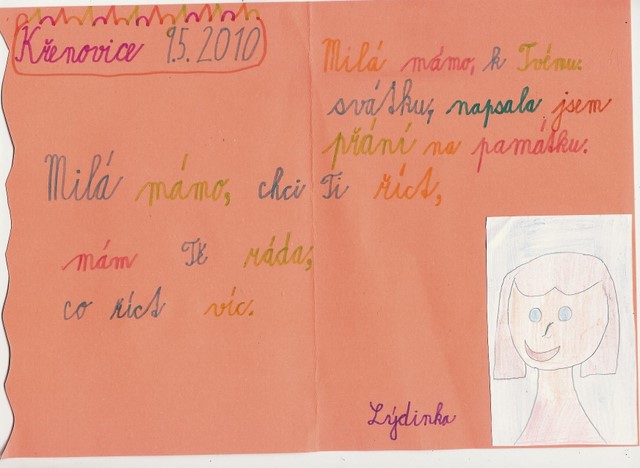 Křenovice 9.5.2010
Milá mámo, chci Ti říct,
mám Tě ráda,
co říct víc.
Milá mámo, k Tvému
svátku, napsala jsem
přání na památku.
Lýdinka